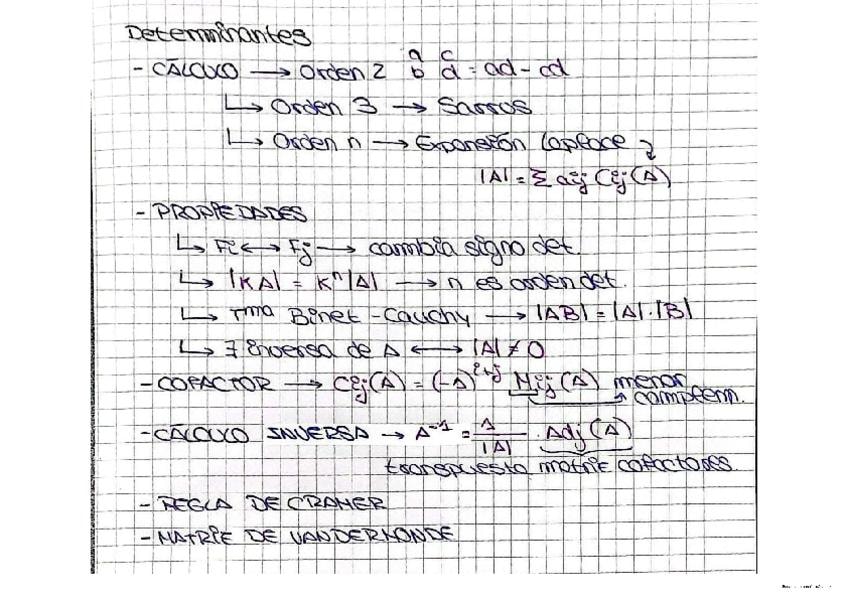 Determinantes
- CÁLCULO → Orden 2 a c
b d = ad - cd
↳ Orden 3 → Sarros
↳ Orden n → Expansión Laplace
|A| = Σ aij Cij(A)
- PROPIEDADES
↳ Fi ↔ Fj → cambia signo det.
↳ |KA| = Kⁿ|A| → n es orden det.
↳ Tma Binet-Cauchy → |AB| = |A|·|B|
↳ ∃ inversa de A ↔ |A| ≠ 0
- COFACTOR → Cij(A) = (-1)^i+j Mij(A) menor
complem.
- CÁLCULO INVERSA → A⁻¹ = 1/|A| · Adj(A)
transpuesta matriz cofactores
- REGLA DE CRAMER
- MATRIZ DE VANDERMONDE